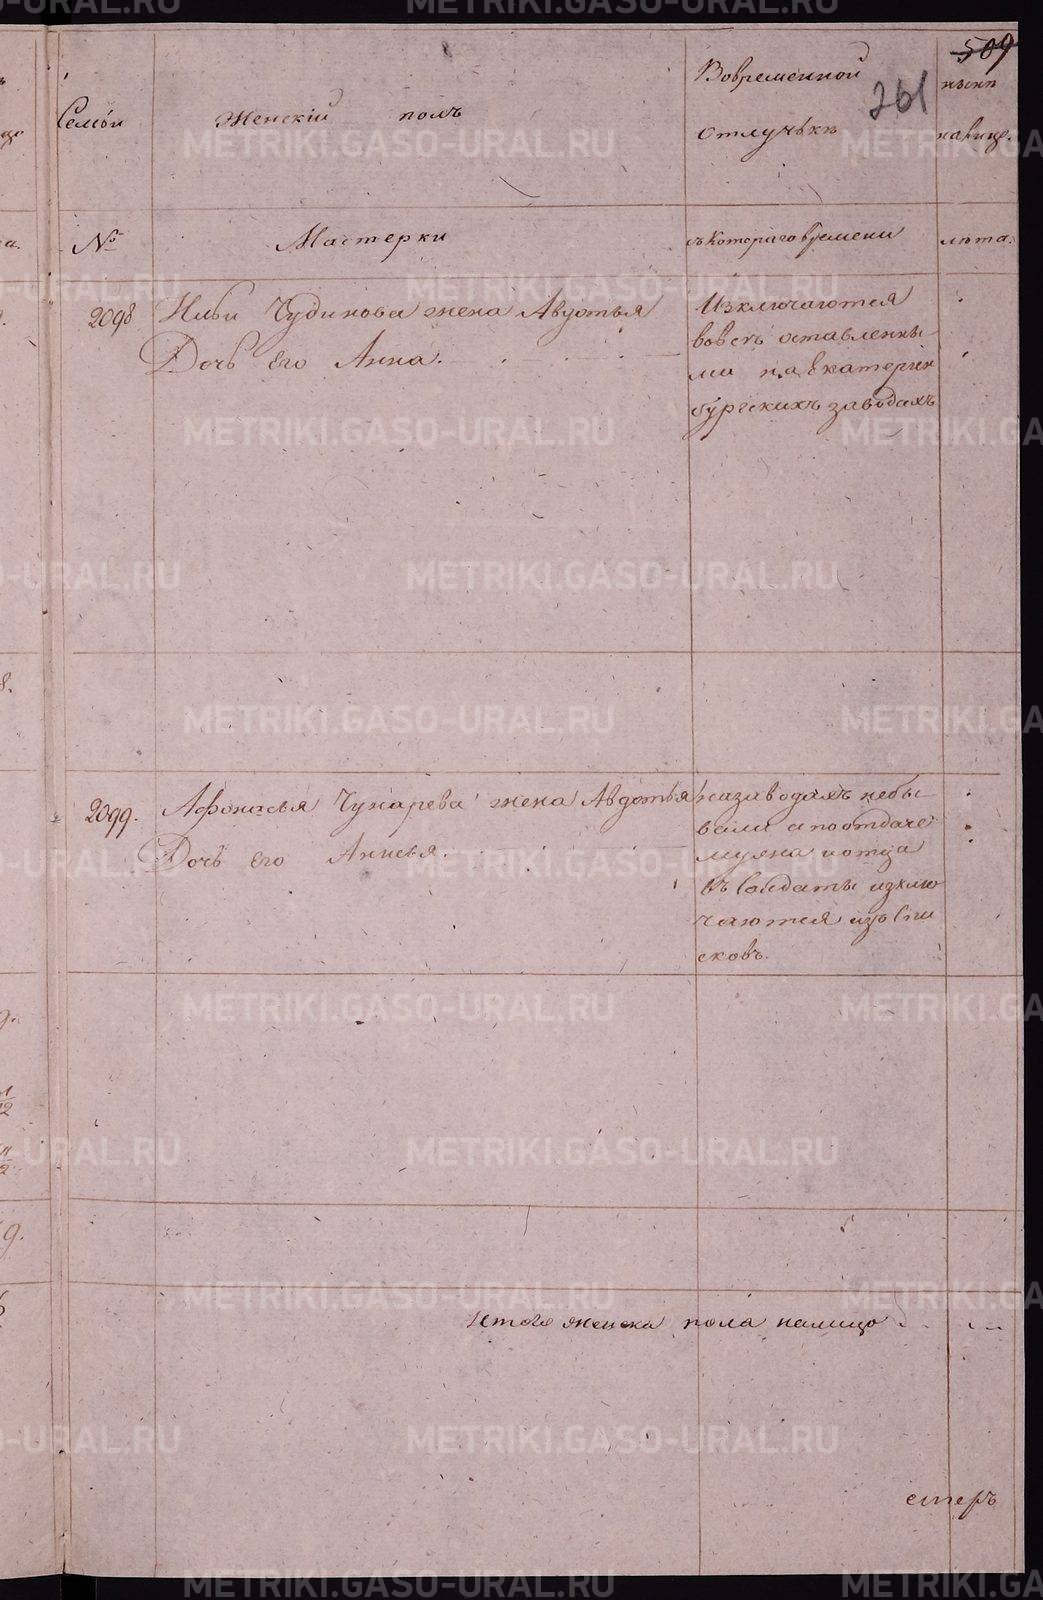 509
261
Семьи
Женскій полъ
Вовременной
отлучькѣ
нынѣ
налицо.
№
Мастерки
съ Котораго времени
лѣта.
2098
Ильи Чудинова жена Авдотья
Дочь его Анна.
Изключаются
вовсѣ оставленны-
ми на Екатерин
бургскихъ заводахъ
2099.
Афонасья Чунарева жена Авдотья
Дочь его Анисья.
назаводахъ небы-
вали а поотдаче
мужа и отца
въ Солдаты изклю
чаются изъ Спи
сковъ.
Итого женска пола налицо
METRIKI.GASO-URAL.RU